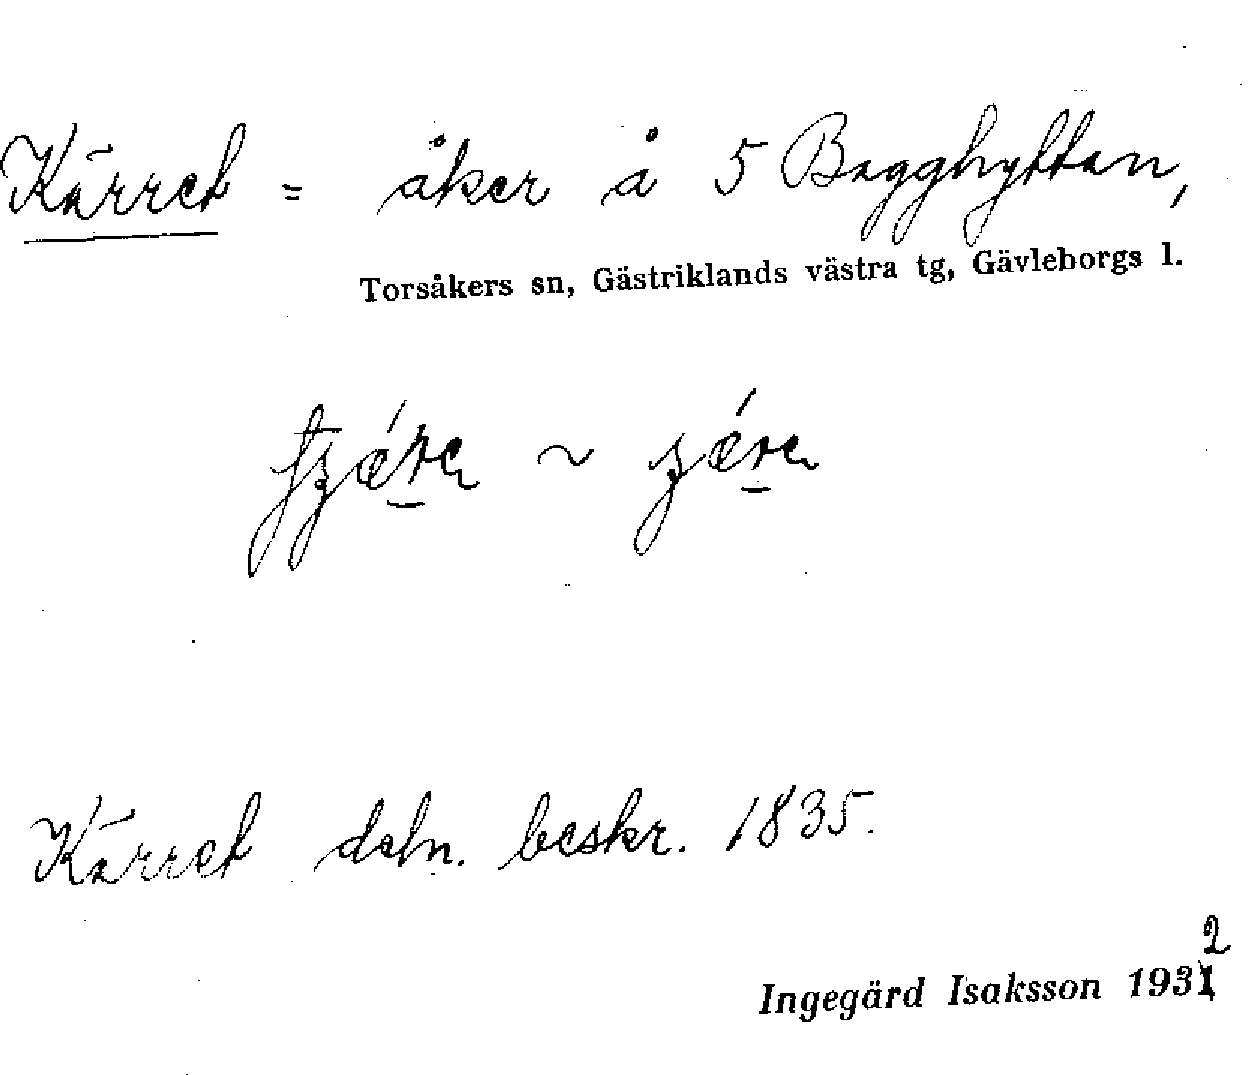 Kärret = åker å 5 Bagghyttan,
Torsåkers sn, Gästriklands västra tg, Gävleborgs l.
~
Kärret deln. beskr. 1835.
2
Ingegärd Isaksson 1931